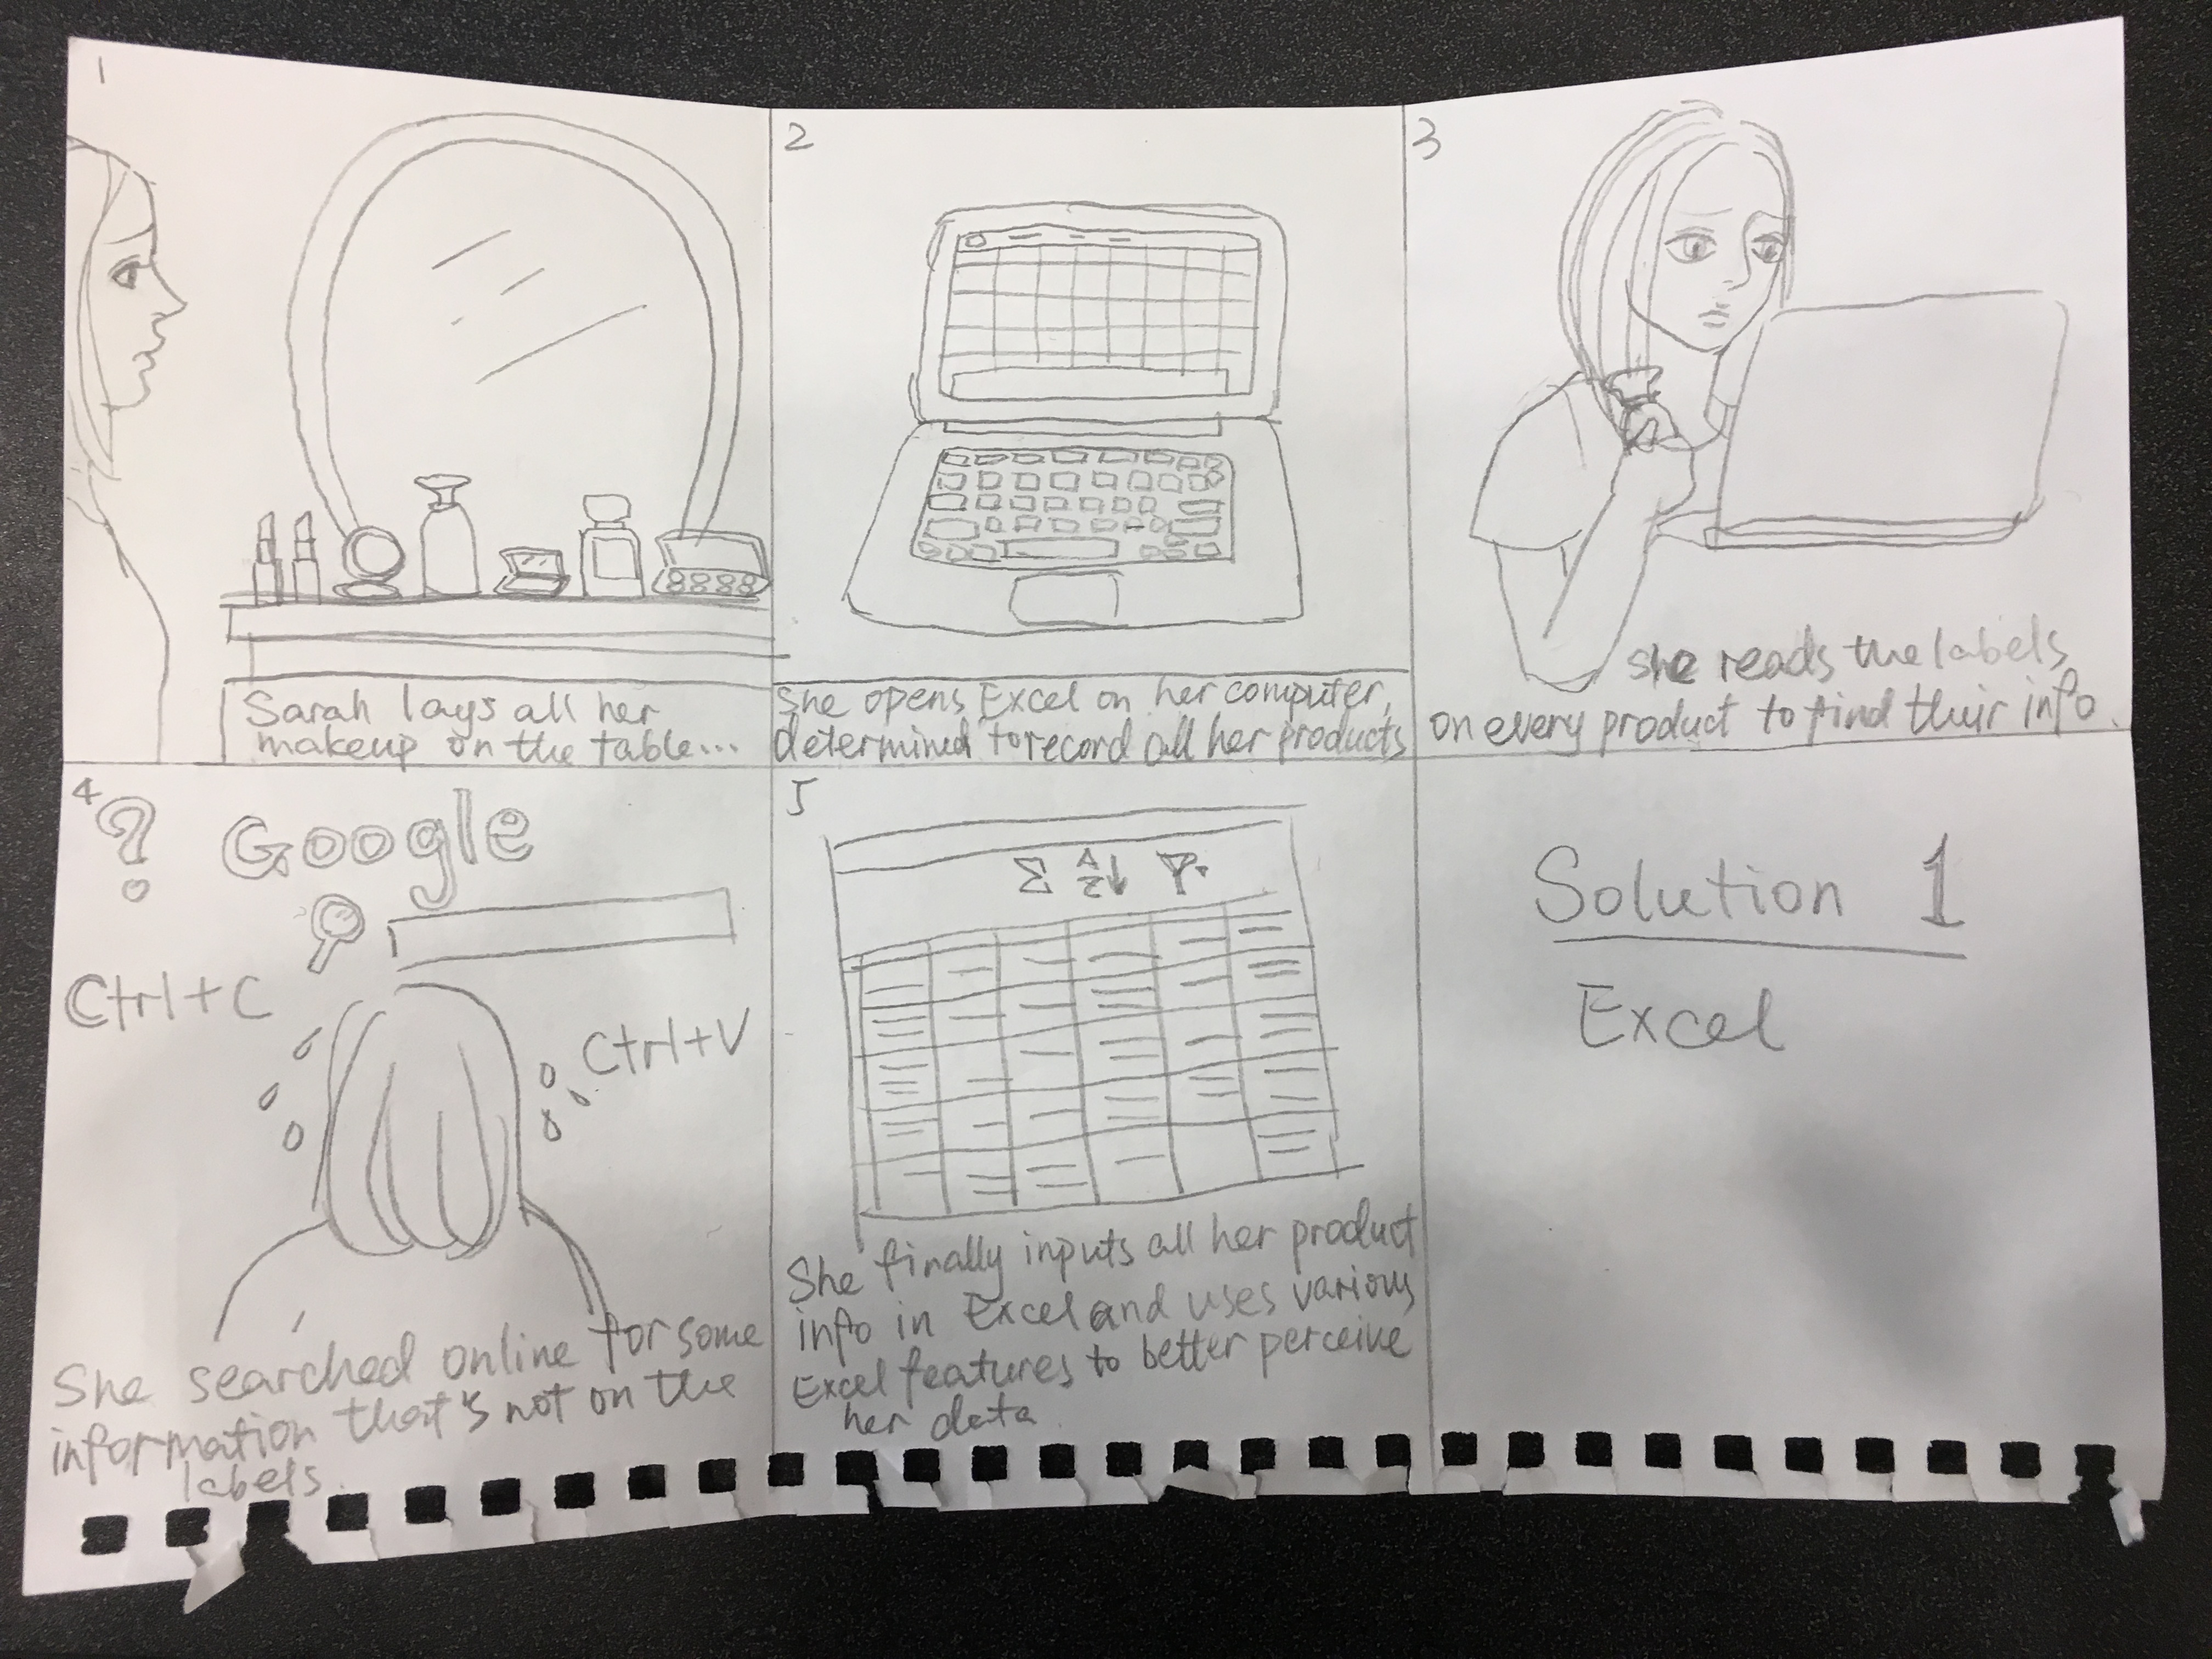 1
Sarah lays all her
makeup on the table...
2
She opens Excel on her computer,
determined to record all her products
3
she reads the labels
on every product to find their info.
4
?
Google
Ctrl+C
Ctrl+V
She searched online for some
information that's not on the
labels.
5
Σ A Z↓
She finally inputs all her product
info in Excel and uses various
Excel features to better perceive
her data.
Solution 1
Excel